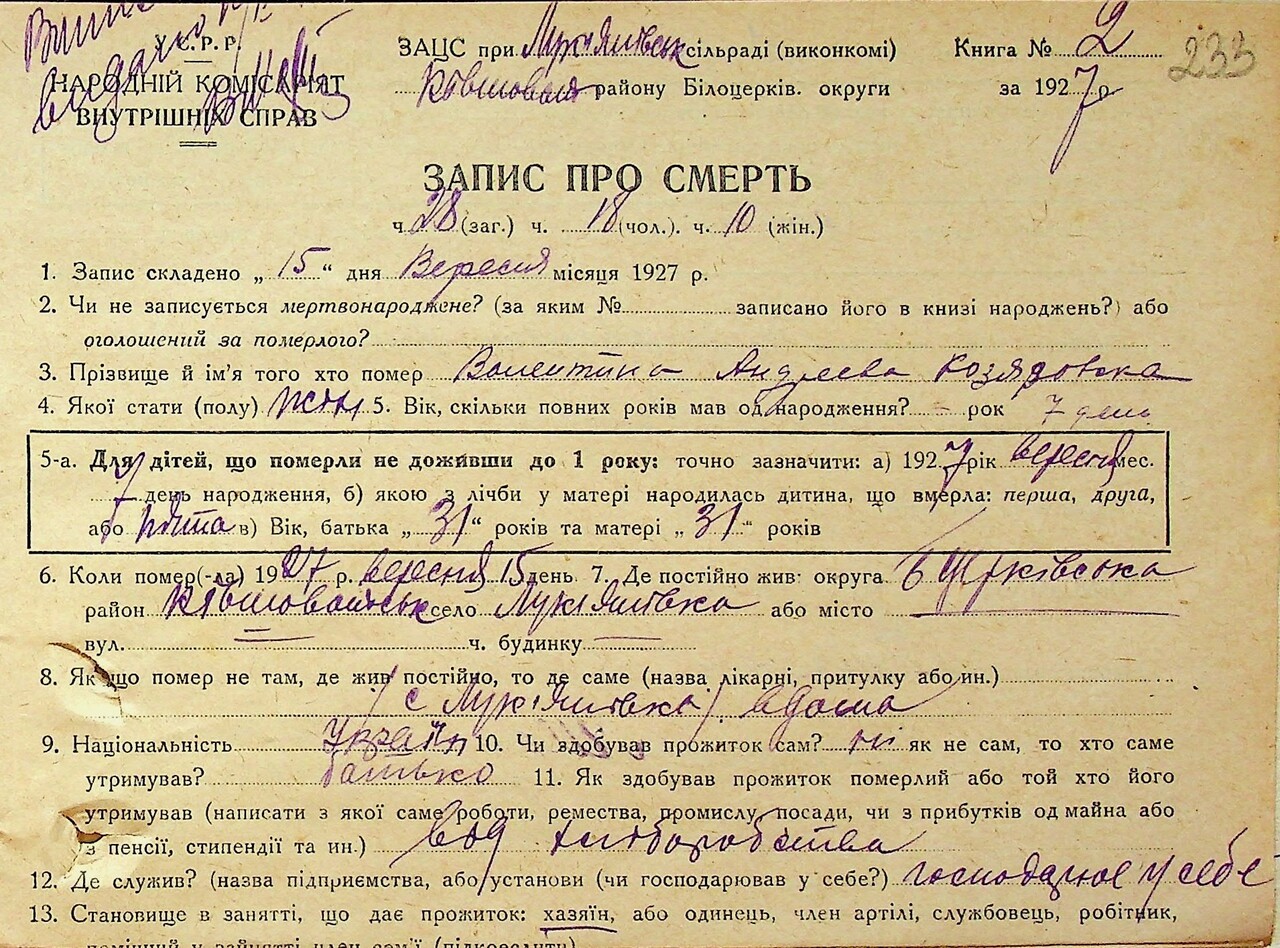 У.С.Р.Р.
НАРОДНІЙ КОМІСАРІЯТ
ВНУТРІШНІХ СПРАВ
ЗАЦС при Лукіянівськ сільраді (виконкомі)
району Білоцерків. округи
Книга № 2
за 1927 р
233
ЗАПИС ПРО СМЕРТЬ
ч 28 (заг.) ч. 18 (чол.). ч. 10 (жін.)
1. Запис складено „ 15 “ дня Вересня місяця 1927 р.
2. Чи не записується мертвонароджене? (за яким № записано його в книзі народжень?) або
оголошений за померлого?
3. Прізвище й ім'я того хто помер Валентина Андреева Козядовска
4. Якої стати (полу) жін 5. Вік, скільки повних років мав од народження? – рок 7 день
5-а. Для дітей, що померли не доживши до 1 року: точно зазначити: а) 1927 рік вересня мес.
7 день народження, б) якою з лічби у матері народилась дитина, що вмерла: перша, друга,
або пята в) Вік, батька „ 31 “ років та матері „ 31 “ років
6. Коли помер(-ла) 1927 р. вересня 15 день 7. Де постійно жив: округа Б Церківська
район село Лукіянівка або місто
вул. — ч. будинку —
8. Якщо помер не там, де жив постійно, то де саме (назва лікарні, притулку або ин.)
/ с Лукіянівка / вдома
9. Національність Україн 10. Чи здобував прожиток сам? ні як не сам, то хто саме
утримував? батько 11. Як здобував прожиток померлий або той хто його
утримував (написати з якої саме роботи, ремества, промислу, посади, чи з прибутків од майна або
з пенсії, стипендії та ин.) від хліборобства
12. Де служив? (назва підприємства, або установи (чи господарював у себе?) господарює у себе
13. Становище в занятті, що дає прожиток: хазяїн, або одинець, член артілі, службовець, робітник,